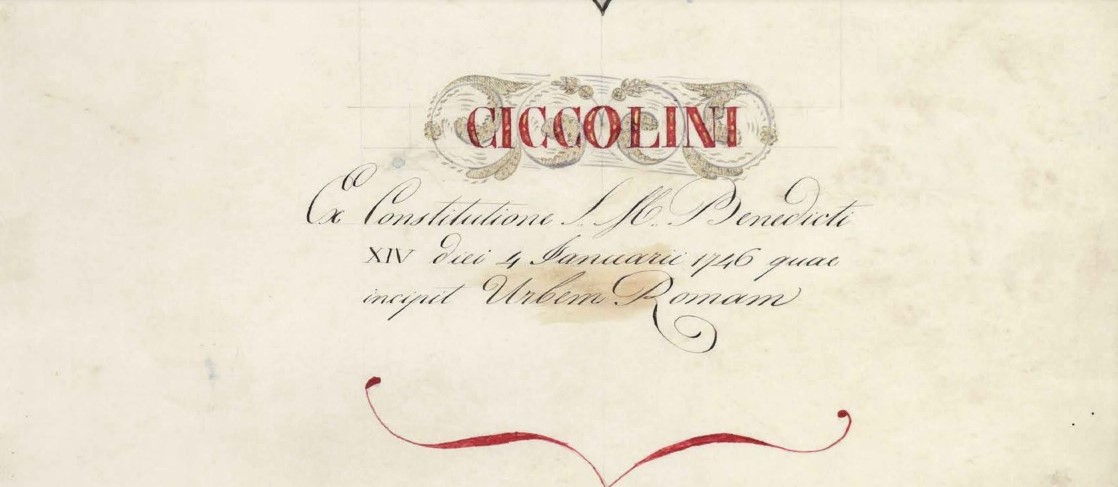 CICCOLINI
Ex Constitutione S. M. Benedicti
XIV diei 4 Januarii 1746 quae
incipit Urbem Romam